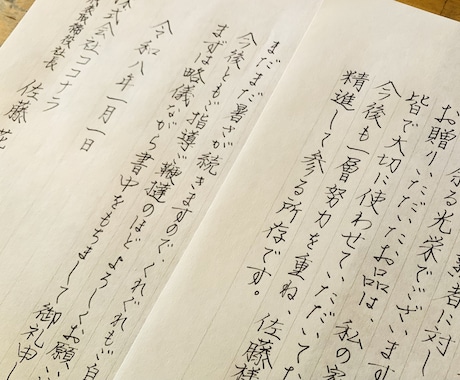 者に対し
余る光栄でございます
お贈りいただいたお品は、私の家
皆で大切に使わせていただいた
今後も一層努力を重ね、佐藤様
精進して参る所存です。
まだまだ暑さが続きますので、くれぐれもご自
今後ともご指導ご鞭撻のほどよろしくお願い
まずは略儀ながら書中をもちまして御礼申し
令和八年一月一日
株式会社ココナラ
代表取締役社長 佐藤 花